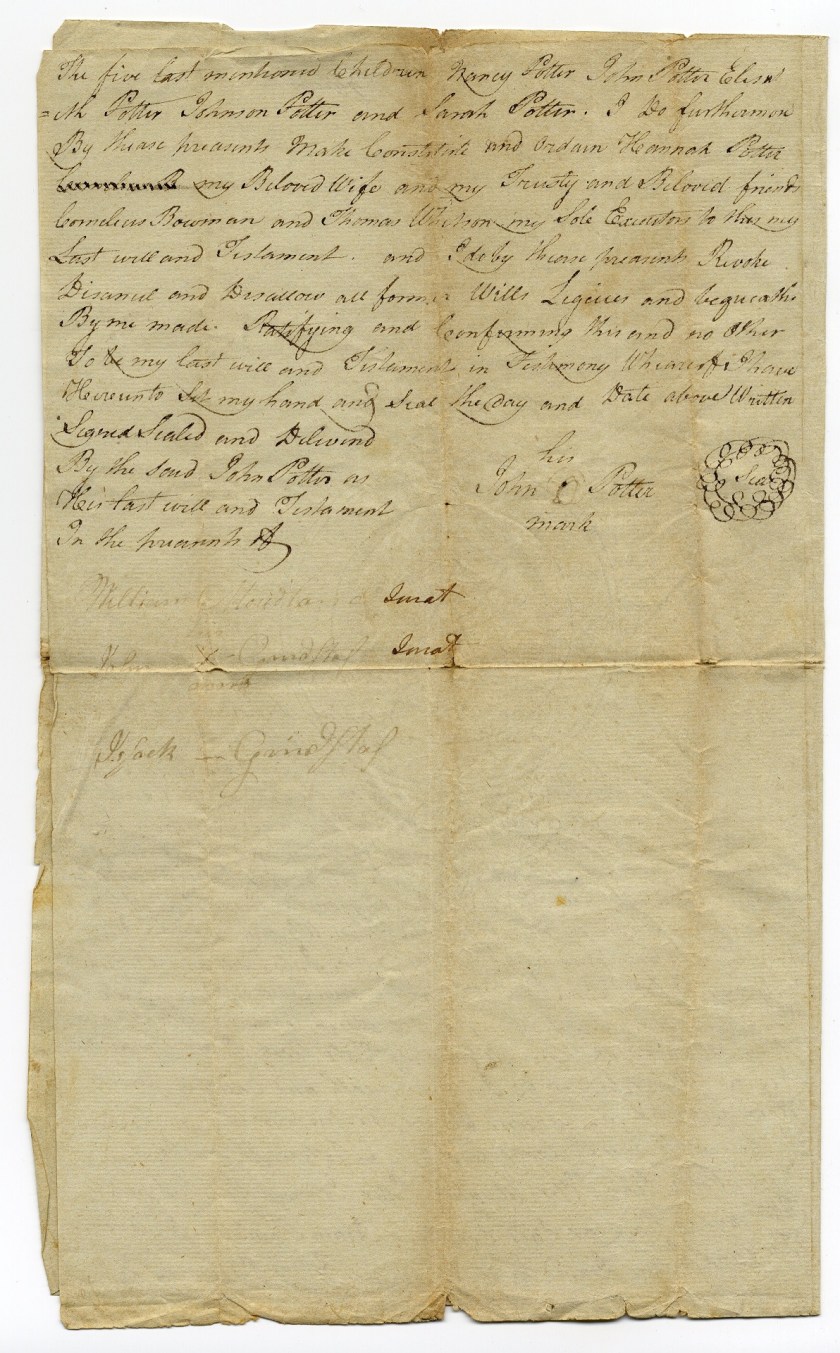 The five last mentioned Children Nancy Potter John Potter Elisab
=eth Potter Johnson Potter and Sarah Potter. I Do furthermore
By thease preasents Make Constitute and Ordain Hannah Potter
my Beloved Wife and my Trusty and Beloved friends
Cornelius Bowman and Thomas Whitson my Sole Executors to this my
Last will and Testament. and I do by thease preasents Revoke
Disanul and Disallow all former Wills Legices and bequeaths
By me made. Ratifying and Confirming this and no Other
To be my last will and Testament in Testimony Whearof I have
Hereunto Set my hand and Seal the Day and Date above Written
Signed Sealed and Deliverd
By the said John Potter as
His last will and Testament
In the preasents of
his
John Potter
mark
Seal
William Jurat
Grindstaf Jurat
Isack Grindstaf